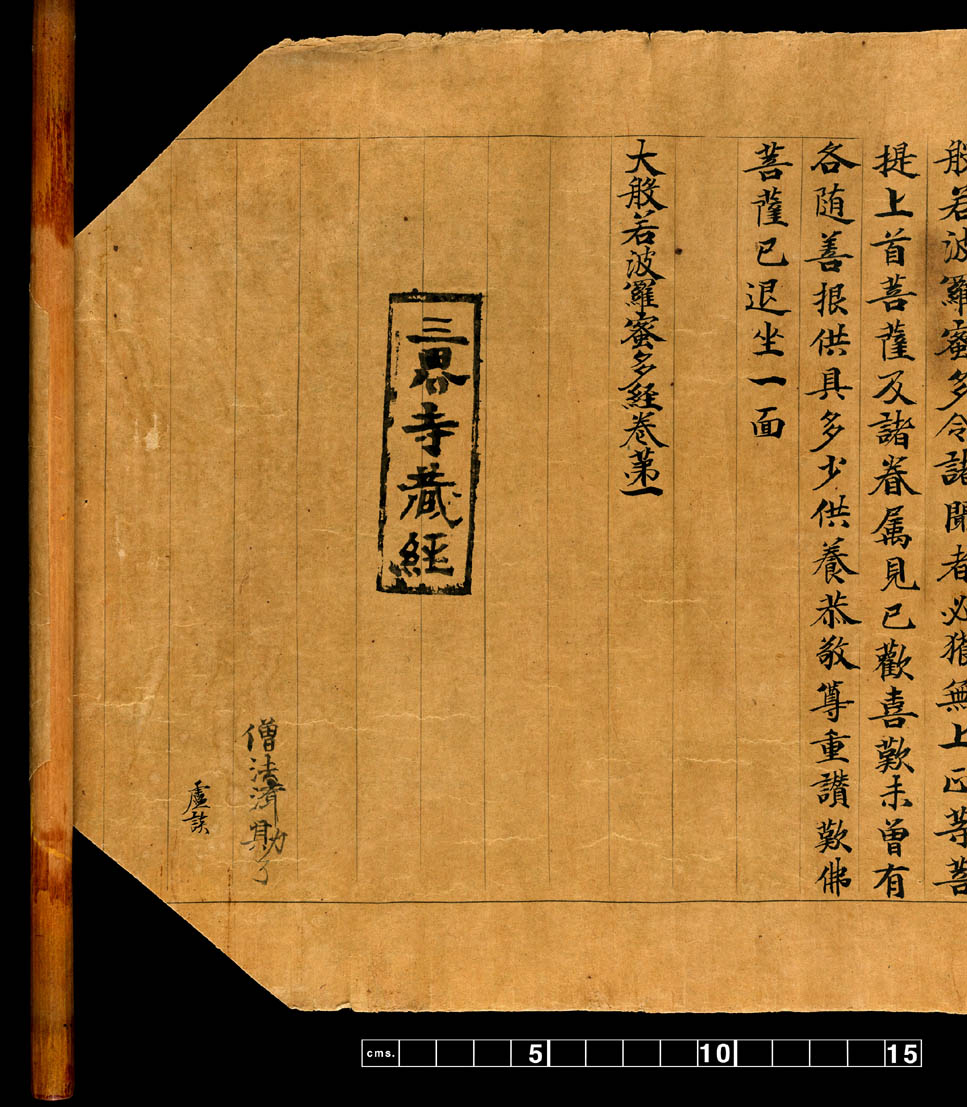 般若波羅蜜多令諸聞者必獲無上正等菩
提上首菩薩及諸眷属見已歡喜歎未曾有
各随善根供具多少供養恭敬尊重讃歎佛
菩薩已退坐一面
大般若波羅蜜多経卷第一
三界寺藏經
僧法濟勘了
盧談
cms. 5 10 15